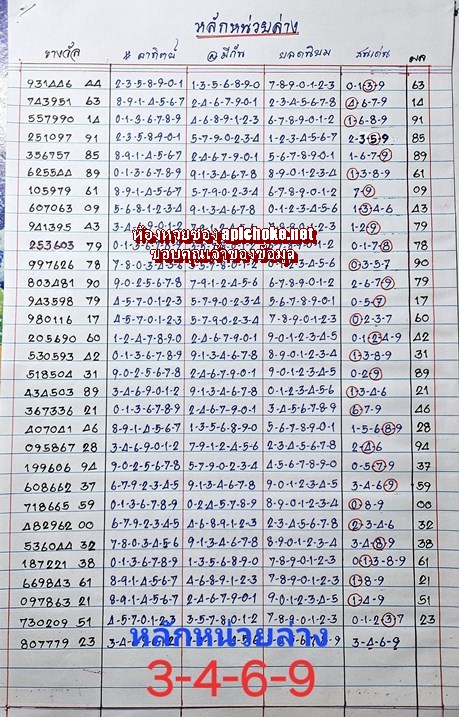 หลักหน่วยล่าง
รางวัล น ลาทิตย์ มีกัน ยลดนิยม ชนเด่น ผล
931446 44 2-3-5-8-9-0-1 1-3-5-6-8-9-0 7-8-9-0-1-2-3 0-1-3-9 63
743951 63 8-9-1-4-5-6-7 2-4-6-7-9-0-1 2-3-4-5-6-7-8 4-6-7-9 14
557990 14 0-1-3-6-7-8-9 4-6-8-9-1-2-3 6-7-8-9-0-1-2 1-6-8-9 91
251097 91 2-3-5-8-9-0-1 5-7-9-0-2-3-4 1-2-3-4-5-6-7 2-3-5-9 85
356757 85 8-9-1-4-5-6-7 2-4-6-7-9-0-1 5-6-7-8-9-0-1 1-6-7-9 89
625544 89 0-1-3-6-7-8-9 9-1-3-4-6-7-8 8-9-0-1-2-3-4 1-3-8-9 61
105979 61 8-9-1-4-5-6-7 5-7-9-0-2-3-4 6-7-8-9-0-1-2 7-9 09
607063 09 1-3-4-6 43
941395 43 1-2-9 79
253603 79 0-1-7-8 78
ห้องหวยซอง apichoke.net
ขอบคุณเจ้าของข้อมูล
997626 78 0-3-5-7 90
803481 90 9-0-2-5-6-7-8 7-9-1-2-4-5-6 6-7-8-9-0-1-2 2-6-7-9 79
943598 79 4-5-7-0-1-2-3 0-2-4-5-7-8-9 5-6-7-8-9-0-1 0-5-7 17
980116 17 4-5-7-0-1-2-3 5-7-9-0-2-3-4 7-8-9-0-1-2-3 0-2-3-7 60
205690 60 1-2-4-7-8-9-0 2-4-6-7-9-0-1 9-0-1-2-3-4-5 0-1-2-4-9 42
530593 42 0-1-3-6-7-8-9 9-1-3-4-6-7-8 8-9-0-1-2-3-4 1-3-8-9 31
518504 31 9-0-2-5-6-7-8 2-4-6-7-9-0-1 8-9-0-1-2-3-4 0-2-9 89
434503 89 3-4-6-9-0-1-2 9-1-3-4-6-7-8 0-1-2-3-4-5-6 1-3-4-6 21
367336 21 0-1-3-6-7-8-9 2-4-6-7-9-0-1 3-4-5-6-7-8-9 6-7-9 46
407041 46 1-5-6-8-9 28
095867 28 3-4-6-9-0-1-2 7-9-1-2-4-5-6 2-3-4-5-6-7-8 2-4-6 94
199606 94 9-0-2-5-6-7-8 5-7-9-0-2-3-4 4-5-6-7-8-9-0 0-5-7-9 37
608662 37 6-7-9-2-3-4-5 9-1-3-4-6-7-8 9-0-1-2-3-4-5 3-4-6-9 59
718665 59 0-1-3-6-7-8-9 0-2-4-5-7-8-9 8-9-0-1-2-3-4 0-8-9 00
482962 00 6-7-9-2-3-4-5 4-6-8-9-1-2-3 2-3-4-5-6-7-8 2-3-4-6 32
536044 32 7-8-0-3-4-5-6 9-1-3-4-6-7-8 8-9-0-1-2-3-4 3-4-8-9 38
187221 38 0-1-3-6-7-8-9 1-3-5-6-8-9-0 7-8-9-0-1-2-3 0-1-3-8-9 61
669843 61 8-9-1-4-5-6-7 4-6-8-9-1-2-3 7-8-9-0-1-2-3 1-8-9 21
097863 21 8-9-1-4-5-6-7 2-4-6-7-9-0-1 9-0-1-2-3-4-5 1-4-9 51
730209 51 4-5-7-0-1-2-3 3-5-7-8-0-1-2 7-8-9-0-1-2-3 0-1-2-3-7 23
807779 23 3-4-6-9
หลักหน่วยล่าง
3-4-6-9